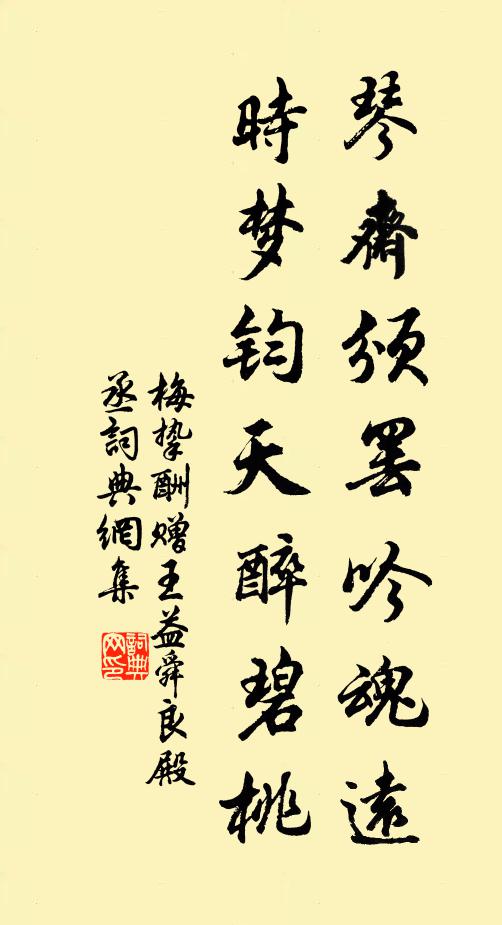 琴齋頒罢吟魂遠
時梦鈞天醉碧桃
梅挚酬赠王益舜良殿
丞詞典網集
詞典网印